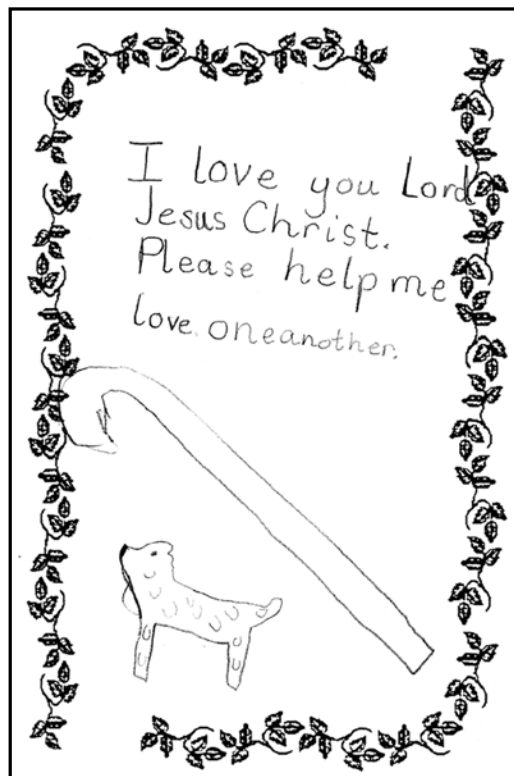 I love you Lord
Jesus Christ.
Please help me
love. oneanother.